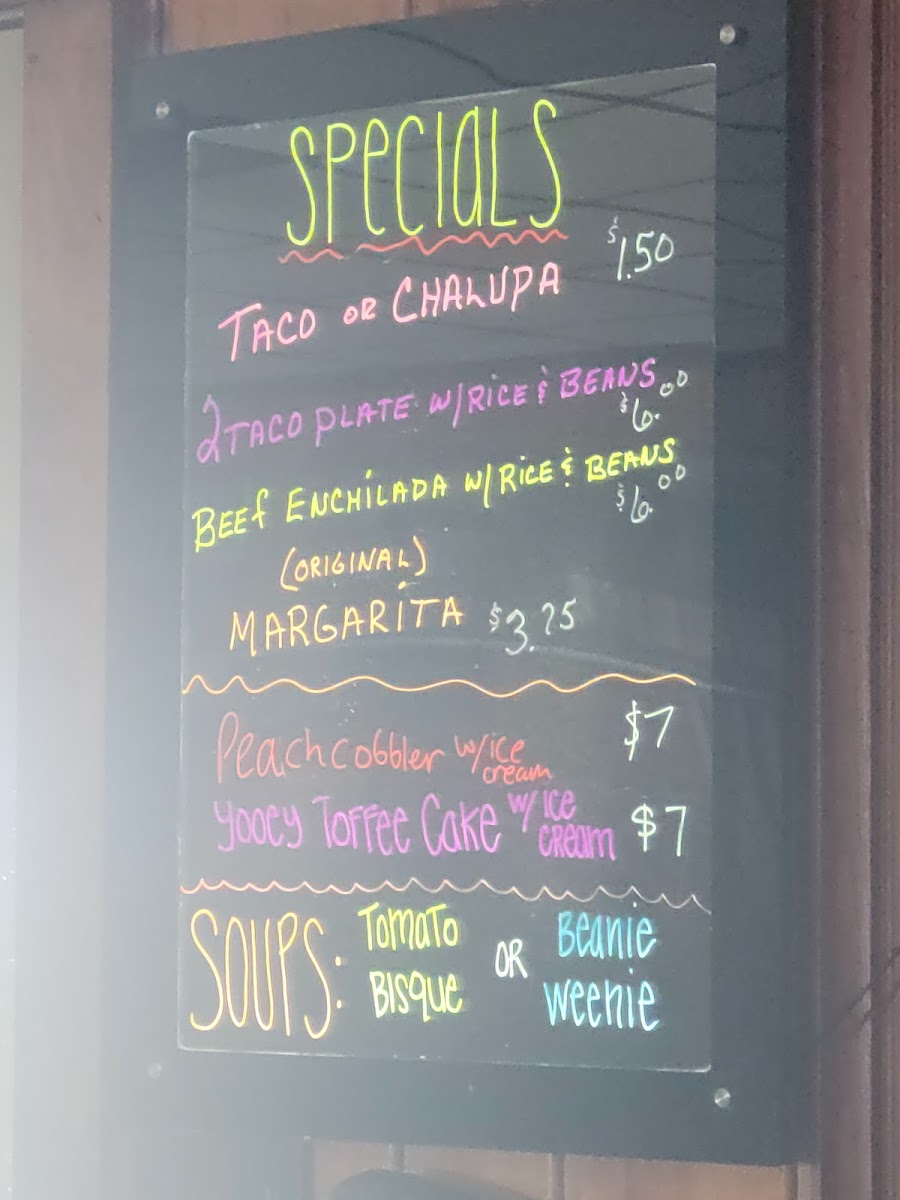 SPECIALS
TACO OR CHALUPA $1.50
2 TACO PLATE W/RICE & BEANS $6.00
BEEF ENCHILADA W/RICE & BEANS $6.00
(ORIGINAL)
MARGARITA $3.75
Peach cobbler w/ice cream $7
gooey Toffee Cake w/ ICE CREAM $7
SOUPS: Tomato Bisque OR Beanie Weenie